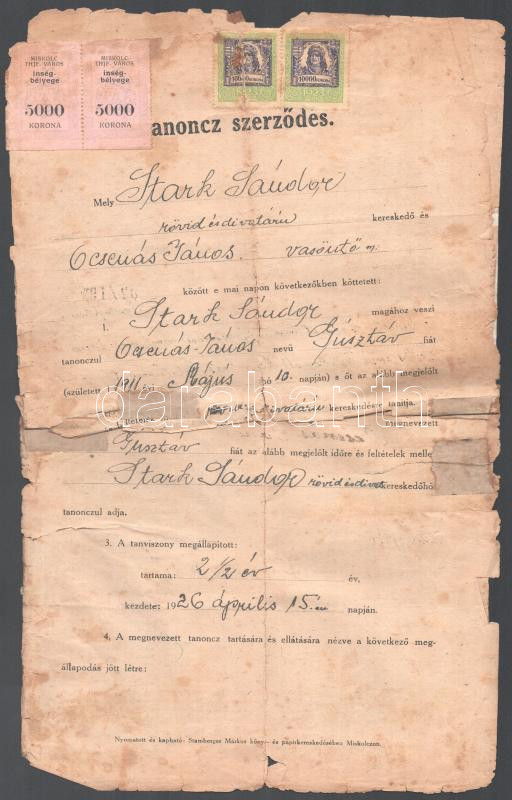 MISKOLC MISKOLC
THJF. VÁROS THJF. VÁROS
inség- inség-
bélyege bélyege
5000 5000
KORONA KORONA
10000 KORONA
anoncz szerződés.
Mely Stark Sándor
rövid és divatáru kereskedő és
Ocsenás János. vasöntő
között e mai napon következőkben köttetett:
1. Stark Sándor magához veszi
tanonczul Ocsenás János nevü Gusztáv fiát
(született 1911 évi Május hó 10. napján) s őt az alább megjelölt
divatáru kereskedésre tanítja.
megnevezett
Gusztáv fiát az alább megjelölt időre és feltételek melle
Stark Sándor rövid és divat kereskedőhö
tanonczul adja.
3. A tanviszony megállapitott:
tartama: 2 1/2 év év,
kezdete: 1926 április 15.-én napján.
4. A megnevezett tanoncz tartására és ellátására nézve a következő meg-
állapodás jött létre:
Nyomatott és kapható: Stamberger Márkus könyv- és papirkereskedésében Miskolczon.
darabanth